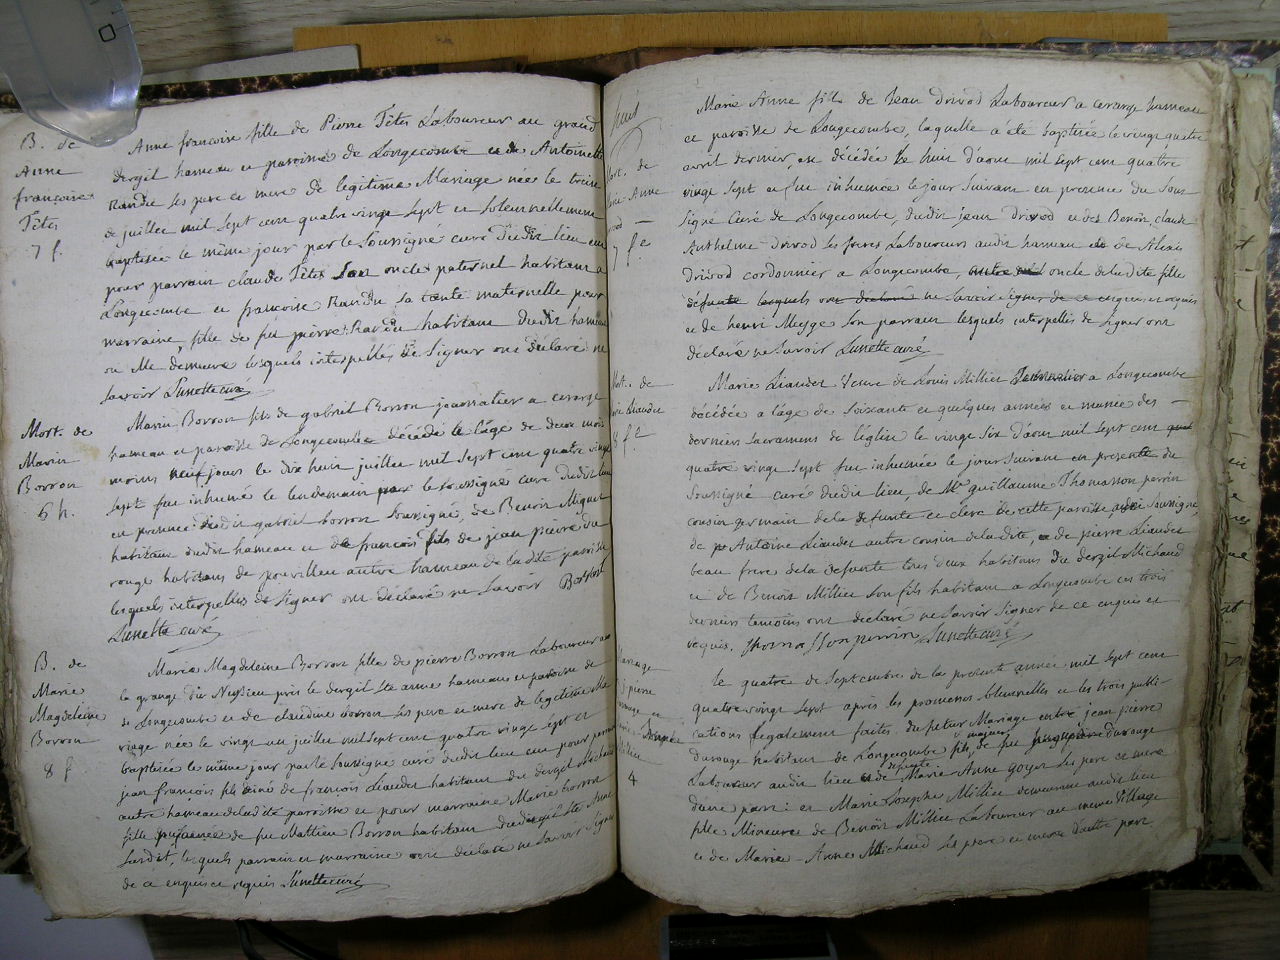 B. de
Anne
francoise
Fêtes
7 f.
Anne francoise fille de Pierre Fêtes Laboureur au grand
dergil hameau et paroisse de Longecombe et de Antoinette
Randu ses pere et mere de legitime Mariage née le treize
de juillet mil sept cent quatre vingt sept et solemnellement
baptisée le même jour par le soussigné curé dudit lieu eut
pour parrain claude Fêtes son oncle paternel habitant a
Longecombe et francoise Randu sa tante maternelle pour
marraine, fille de feu pierre Randu habitant dudit hameau
ou elle demeure lesquels interpellés de signer ont déclaré ne
savoir Lunette curé
Mort. de
Marin
Borron
6 h.
Marin Borron fils de gabriel Borron journalier a cerarge
hameau et paroisse de Longecombe décédé a l'âge de deux mois
moins neuf jours le dix huit juillet mil sept cent quatre vingt
sept fut inhumé le lendemain par le soussigné curé dudit lieu
en presence dudit gabriel borron soussigné, de Benoit Miguet
habitant dudit hameau et de francois fils de jean pierre du
rouge habitant de pouvillieu autre hameau de ladite paroisse
lesquels interpellés de signer ont déclaré ne savoir Borron
Lunette curé
B. de
Marie
Magdeleine
Borron
8 f.
Marie Magdeleine Borron fille de pierre Borron Laboureur a
la grange du près le dergil ste anne hameau et paroisse de
de Longecombe et de claudine borron ses pere et mere de legitime Ma
riage née le vingt un juillet mil sept cent quatre vingt sept et
baptisée le même jour par le soussigné curé dudit lieu eut pour parrain
jean françois fils ainé de françois Liaudet habitant du dergil Michaud
autre hameau de ladite paroisse et pour marraine Marie borron
fille puisnée de feu Mathieu Borron habitant dudit dergil ste Anne
susdit, lesquels parrain et marraine ont déclaré ne savoir signer
de ce enquis et requis Lunette curé
huit
Mort. de
Marie Anne
7 f e
Marie Anne fille de Jean Drivod Laboureur a cerarge hameau
et paroisse de Longecombe, laquelle a été baptisée le vingt quatre
avril dernier, est décédée le huit d'août mil sept cent quatre
vingt sept et fut inhumée le jour suivant en presence du sous
signé curé de Longecombe, dudit jean drivod et des Benoît, claude
Anthelme drivod ses freres Laboureurs audit hameau et de Alexis
Drivod cordonnier a Longecombe, oncle de ladite fille
défunte lesquels ont déclaré ne savoir signer de ce enquis et requis
et de henri Meyge son parrain lesquels interpellés de signer ont
déclaré ne savoir Lunette curé
Mort. de
Marie Liaudet
8 f e
Marie Liaudet veuve de Louis Millier Journalier a Longecombe
décédée a l'âge de soixante et quelques années et munie des
derniers sacremens de l'église le vingt six d'août mil sept cent
quatre vingt sept fut inhumée le jour suivant en presence du
soussigné curé dudit lieu, de Mr guillaume Thomasson perrin
cousin germain de la defunte et clerc de cette paroisse aussi soussigné,
de Antoine Liaudet autre cousin de ladite, et de pierre Liaudet
beau frere de la defunte tous deux habitans du dergil Michaud
et de Benoît Millier son fils habitant a Longecombe ces trois
derniers temoins ont déclaré ne savoir signer de ce enquis et
requis. Thomasson perrin Lunette curé
Mariage
pierre
4
Le quatre de Septembre de la presente année mil sept cent
quatre vingt sept après les promesses solemnelles et les trois publi-
cations légalement faites du futur Mariage entre jean pierre
durouge habitant de Longecombe fils majeur de feu durouge
Laboureur audit lieu et de defunte Marie Anne Goyet ses pere et mere
d'une part: et Marie Josephe Millier demeurant audit lieu
fille Mineure de Benoît Millier Laboureur au meme Village
et de Marie-Anne Michaud ses pere et mere d'autre part